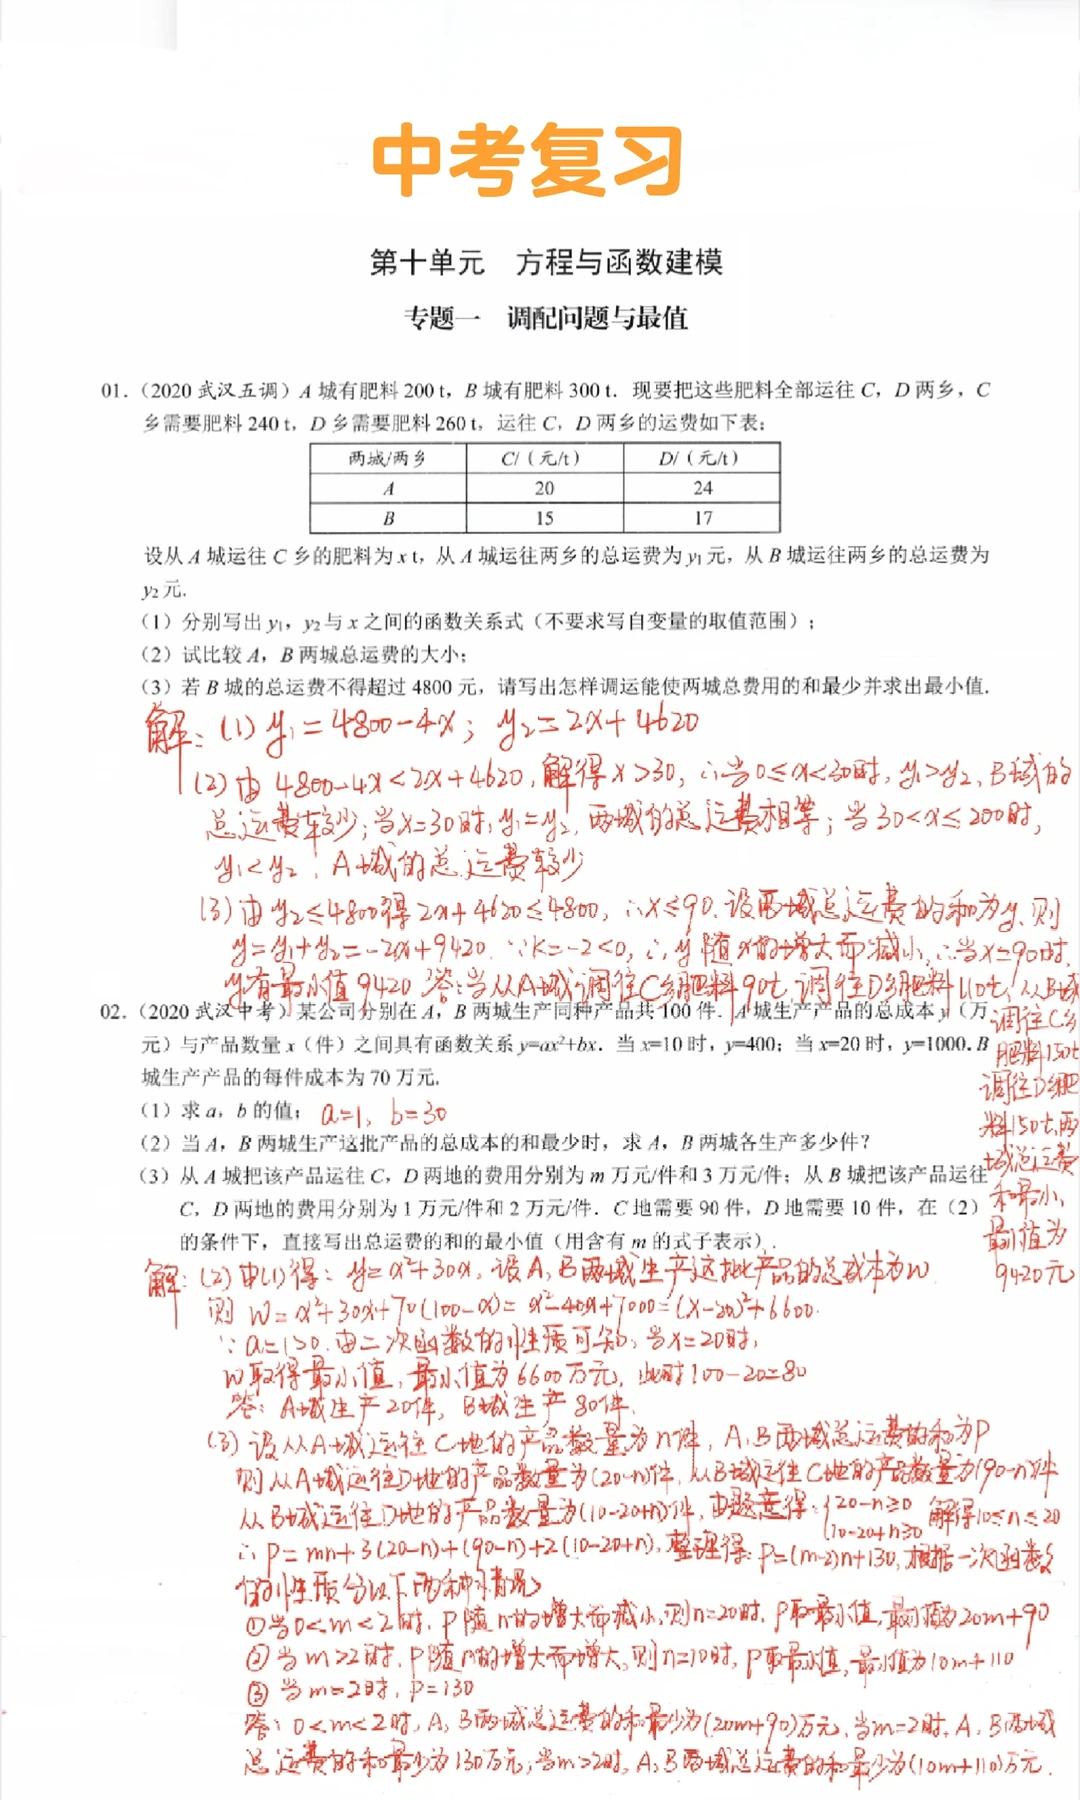 中考复习
第十单元 方程与函数建模
专题一 调配问题与最值
01.（2020 武汉五调）A 城有肥料 200 t，B 城有肥料 300 t．现要把这些肥料全部运往 C，D 两乡，C
乡需要肥料 240 t，D 乡需要肥料 260 t，运往 C，D 两乡的运费如下表：
两城/两乡 C/（元/t） D/（元/t）
A 20 24
B 15 17
设从 A 城运往 C 乡的肥料为 x t，从 A 城运往两乡的总运费为 y₁ 元，从 B 城运往两乡的总运费为
y₂ 元.
（1）分别写出 y₁，y₂ 与 x 之间的函数关系式（不要求写自变量的取值范围）；
（2）试比较 A，B 两城总运费的大小；
（3）若 B 城的总运费不得超过 4800 元，请写出怎样调运能使两城总费用的和最少并求出最小值.
解：(1) y₁=4800-4x；y₂=2x+4620
(2) 由 4800-4x<2x+4620，解得 x>30，∴当0≤x<30时，y₁>y₂，B城的
总运费较少；当x=30时，y₁=y₂，两城的总运费相等；当30<x≤200时，
y₁<y₂，A城的总运费较少
(3) 由y₂≤4800得 2x+4620≤4800，∴x≤90.设两城总运费的和为y，则
y=y₁+y₂=-2x+9420.∵k=-2<0，∴y随x的增大而减小，∴当x=90时，
y有最小值9420 答：当从A城调往C乡肥料90t，调往D乡肥料110t，从B城
调往C乡
肥料150t
调往D乡肥
料150t，两
城总运费
和最小，
最小值为
9420元
02.（2020 武汉中考）某公司分别在 A，B 两城生产同种产品共 100 件．A 城生产产品的总成本 y（万
元）与产品数量 x（件）之间具有函数关系 y=ax²+bx．当 x=10 时，y=400；当 x=20 时，y=1000．B
城生产产品的每件成本为 70 万元.
（1）求 a，b 的值； a=1，b=30
（2）当 A，B 两城生产这批产品的总成本的和最少时，求 A，B 两城各生产多少件？
（3）从 A 城把该产品运往 C，D 两地的费用分别为 m 万元/件和 3 万元/件；从 B 城把该产品运往
C，D 两地的费用分别为 1 万元/件和 2 万元/件．C 地需要 90 件，D 地需要 10 件，在（2）
的条件下，直接写出总运费的和的最小值（用含有 m 的式子表示）.
解：(2) 由(1)得：y=x²+30x，设A，B两城生产这批产品的总成本为w
则 W=x²+30x+70(100-x)=x²-40x+7000=(x-20)²+6600.
∵a=1>0.由二次函数的性质可知，当x=20时，
W取得最小值，最小值为6600万元，此时100-20=80
答：A城生产20件，B城生产80件.
(3) 设从A城运往C地的产品数量为n件，A，B两城总运费的和为P
则从A城运往D地的产品数量为(20-n)件，从B城运往C地的产品数量为(90-n)件
从B城运往D地的产品数量为(10-20+n)件，由题意得：{20-n≥0 10-20+n≥0 解得10≤n≤20
∴P=mn+3(20-n)+(90-n)+2(10-20+n)，整理得：P=(m-2)n+130，根据一次函数
的性质分以下两种情况
①当0<m<2时，P随n的增大而减小，则n=20时，P取最小值，最小值为20m+90
②当m>2时，P随n的增大而增大，则n=10时，P取最小值，最小值为10m+110
③当m=2时，P=130
答：0<m<2时，A，B两城总运费的和最少为(20m+90)万元，当m=2时，A，B两城
总运费的和最少为130万元，当m>2时，A，B两城总运费的和最少为(10m+110)万元.